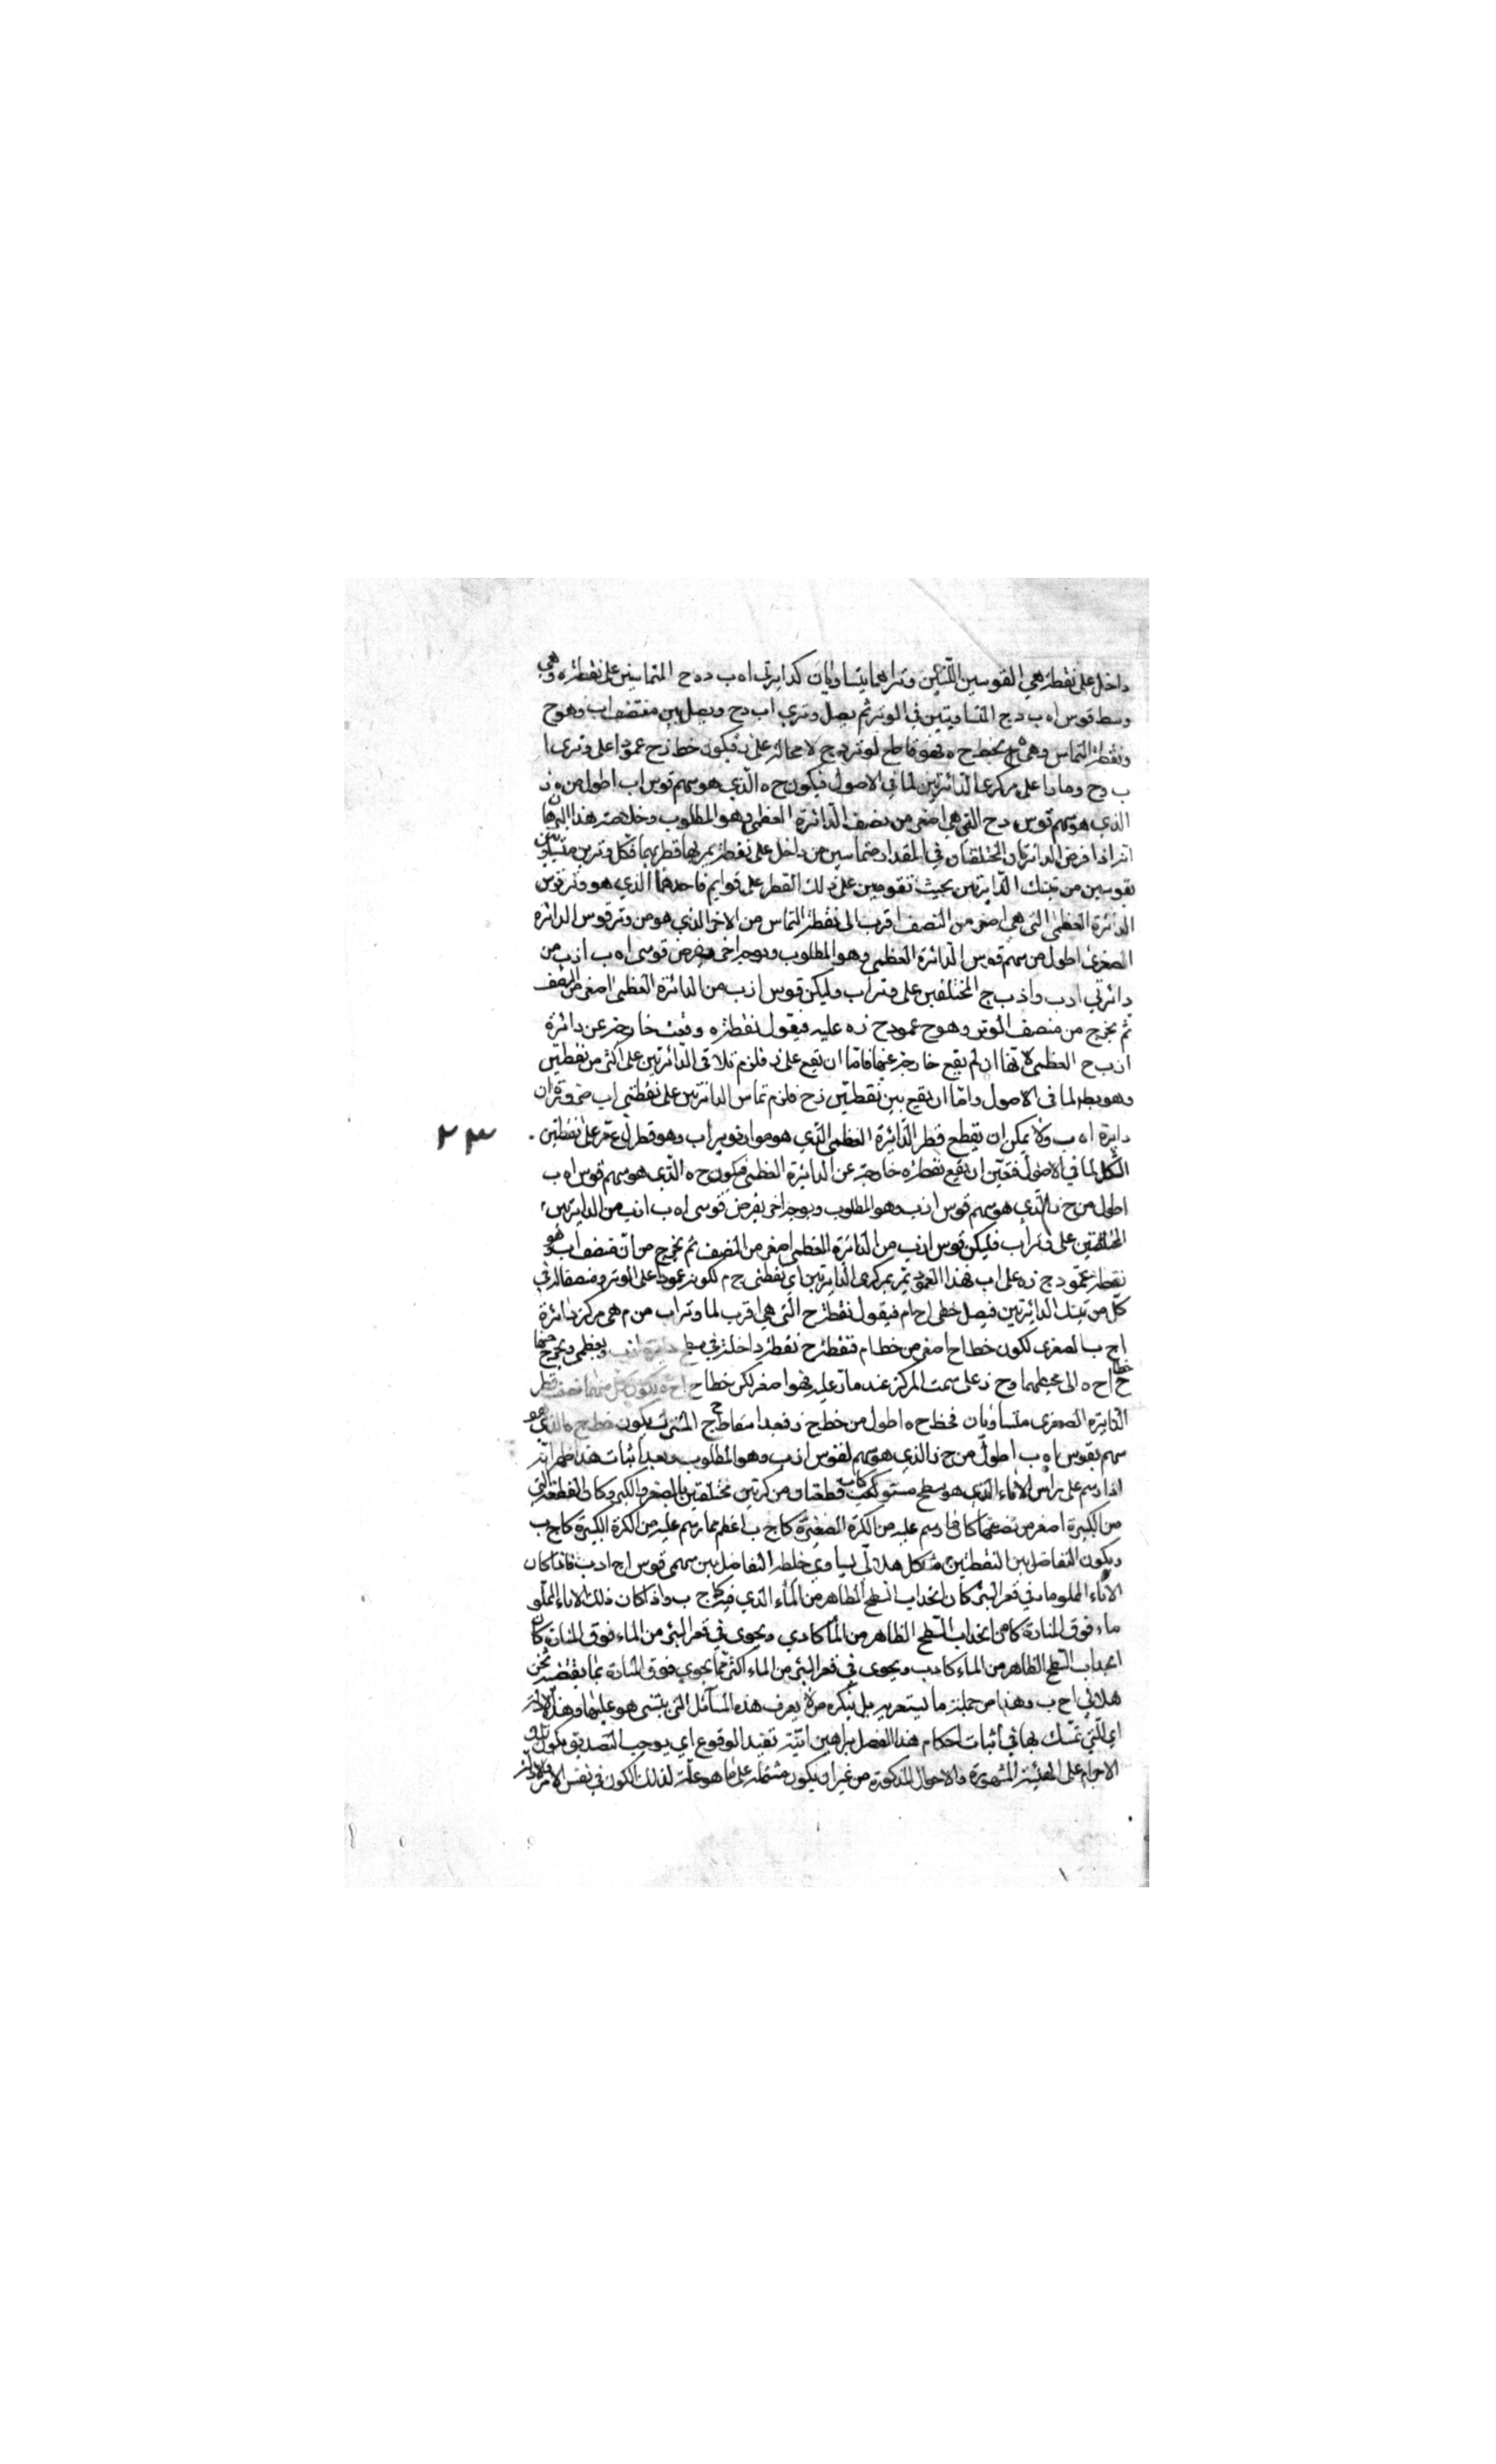 داخل على نقطة هي القوسين اللتين وتراهما يتساويان كدايرتي ا ه ب د ه ح المتماسين على نقطة ه وهي
وسط قوس ا ه ب د ح المتساويتين في الوتر ثم يصل وتري اب دح ويصل بين منتصف اب وهو ح
ونقطة التماس وهي ه بخط ح ه فهو قاطع لوتر د ح لا محالة على ز فيكون خط ز ح عمودا على وتري ا
ب دح ومارا على مركزي الدائرتين لما في الاصول فيكون ح ه الذي هو سهم قوس اب اطول من ه ز
الذي هو سهم قوس د ح التي هي اصغر من نصف الدائرة العظمى وهو المطلوب وخلاصة هذا البرهان
انه اذا فرض الدائرتان المختلفتان في المقدار متماسين من داخل على نقطة يمر بها قطرهما فكل وترين متساويين
لقوسين من تينك الدايرتين بحيث تقومين على ذلك القطر على قوايم فاحدهما الذي هو وتر قوس
الدائرة العظمى التي هي اصغر من النصف اقرب الى نقطة التماس من الاخر الذي هو من وتر قوس الدائرة
الصغرى اطول من سهم قوس الدائرة العظمى وهو المطلوب وبوجه اخر نفرض قوسي ا ه ب ا ز ب من
دائرتي ا د ب و ا ز ب ج المختلفتين على وتر اب وليكن قوس ا ز ب من الدائرة العظمى اصغر من النصف
ثم يخرج من منصف الوتر وهو ح عمود ح ز ه عليه فيقول نقطة ه وقعت خارجة عن دائرة
ا ز ب ح العظمى لانها ان لم يقع خارجة عنها فاما ان تقع على ز فلزم تلاقي الدائرتين على اكثر من نقطتين
وهو بط لما في الاصول واما ان يقع بين نقطتين ز ح فلزم تماس الدائرتين على نقطتي اب ضرورة ان
دايرة ا ه ب ولا يمكن ان يقطع قطر الدائرة العظمى الذي هو مواز لوتر اب وهو قطر ل ع مر على نقطتين
الكل لما في الاصول فتعين ان تقع نقطة ه خارجة عن الدائرة العظمى فيكون ح ه الذي هو سهم قوس ا ه ب
اطول من ح ز الذي هو سهم قوس ا ز ب وهو المطلوب وبوجه اخر يفرض قوسي ا ه ب ا ز ب من الدايرتين
المختلفتين على وتر اب فليكن قوس ا ز ب من الدائرة العظمى اصغر من النصف ثم يخرج من منتصف اب وهو
نقطة ج عمود ج ز ه على اب فهذا العمود يمر بمركزي الدايرتين اي نقطتي ح م لكونه عمودا على الوتر ومنصفا له في
كل من تينك الدائرتين فيصل خطي ا ح ا م فيقول نقطة ح التي هي اقرب لما وتر اب من م هي مركز دائرة
ا ج ب الصغرى لكون خط ا ح اصغر من خط ا م فنقطة ح نقطة داخلة في سطح دايرة ا ز ب العظمى ويخرج منها
خطا ح ا ح ه الى محيطهما وح ز على سمت المركز عند مارة عليه فهو اصغر لكن خطا ح ا ح ه يكون كل منهما نصف قطر
الدايرة الصغرى متساويان فخط ح ه اطول من خط ح ز فبعد اسقاط ح ج المشترك يكون خط ج ه الذي هو
سهم لقوس ا ه ب اطول من ج ز الذي هو سهم لقوس ا ز ب وهو المطلوب وبعد اثبات هذا ظهر انه
اذا رسم على راس الاناء الذي هو سطح مستو كاب قطعتان من كرتين مختلفتين بالصغر والكبر وكان القطعة التي
من الكبيرة اصغر من نصفها كان ما رسم عليه من الكرة الصغيرة كاج ب اعظم مما رسم عليه من الكرة الكبيرة كاح ب
ويكون التفاضل بين النقطتين شكل هلالي يساوي غلظه التفاضل بين سهمي قوس اج ا د ب فاذا كان
الاناء المملو ماء في قعر البئر كان انحداب السطح الظاهر من الماء الذي فيه كاج ب واذا كان ذلك الاناء المملو
ماء فوق المنارة كان انحداب السطح الظاهر من الماء كادب ويحوى في قعر البئر من الماء فوق المنارة كان
انحداب السطح الظاهر من الماء كادب ويحوى في قعر البئر من الماء اكثر مما يحوى فوق المنارة بما يقتضيه ثخن
هلالي ا ح ب وهذا من جملة ما يستغربه بل ينكره من لا يعرف هذه المسائل التي يبتنى هو عليها وهذه الادلة
اي التي تمسك بها في اثبات احكام هذا الفصل براهين انية تفيد الوقوع اي يوجب التصديق بكون
الاجرام على الهيئة المشهورة والاحوال المذكورة من غير ان يكون مشتملة على ما هو علة لذلك الكون في نفس الامر والادلة
٢٣